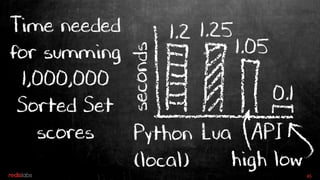 Time needed
for summing
1,000,000
Sorted Set
scores
seconds
1.2 1.25
1.05
0.1
Python Lua API
(local) high low
redislabs